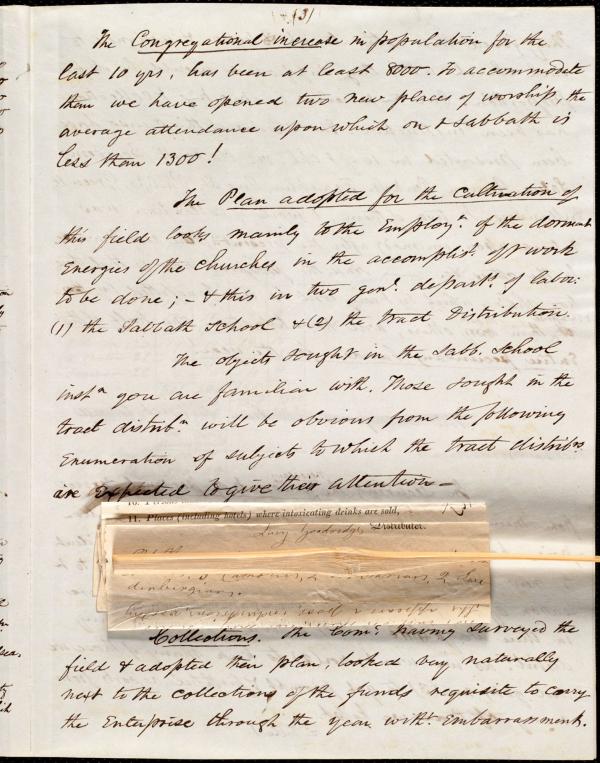 (3)
The Congregational increase in population for the
last 10 yrs, has been at least 8000. To accommodate
them we have opened two new places of worship, the
average attendance upon which on & Sabbath is
less than 1300!
The Plan adopted for the cultivation of
this field looks mainly to the Employⁿ. of the dormant
Energies of the Churches in the accomplisᵗ. of work
to be done; – & this in two genˡ. departˢ. of labor:
(1) the Sabbath School & (2) the tract Distribution.
The objects sought in the Sabb. School
instⁿ you are familiar with. Those sought in the
tract distribⁿ will be obvious from the following
Enumeration of subjects to which the tract distribʳˢ
are Expected to give their attention –
11. Places (including hotels) where intoxicating drinks are sold,
Lucy Goodridge, Distributer.
Collections. The Comᵉ. having surveyed the
field & adopted their plan, looked very naturally
next to the collections of the funds requisite to carry
the Enterprise through the year withᵗ. Embarrassment.